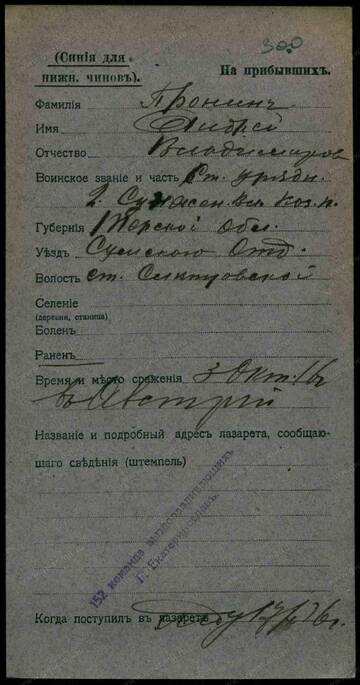 300
(Синія для
нижн. чиновъ).
На прибывшихъ.
Фамилія Пронинъ
Имя Андрей
Отчество Владимиров
Воинское званіе и часть Ст. урядн.
2. Сунжен. Вл. Каз. п.
Губернія Терской Обл.
Уѣздъ Сунженскаго Отд.
Волость ст. Слѣпцовской
Селеніе
(деревня, станица)
Боленъ
Раненъ
Время и мѣсто сраженія 3 Окт. 16 г
въ Австріи
Названіе и подробный адресъ лазарета, сообщаю-
щаго свѣдѣнія (штемпель)
152 команда выздоравливающихъ
Г. Екатеринославъ.
Когда поступилъ въ лазаретъ